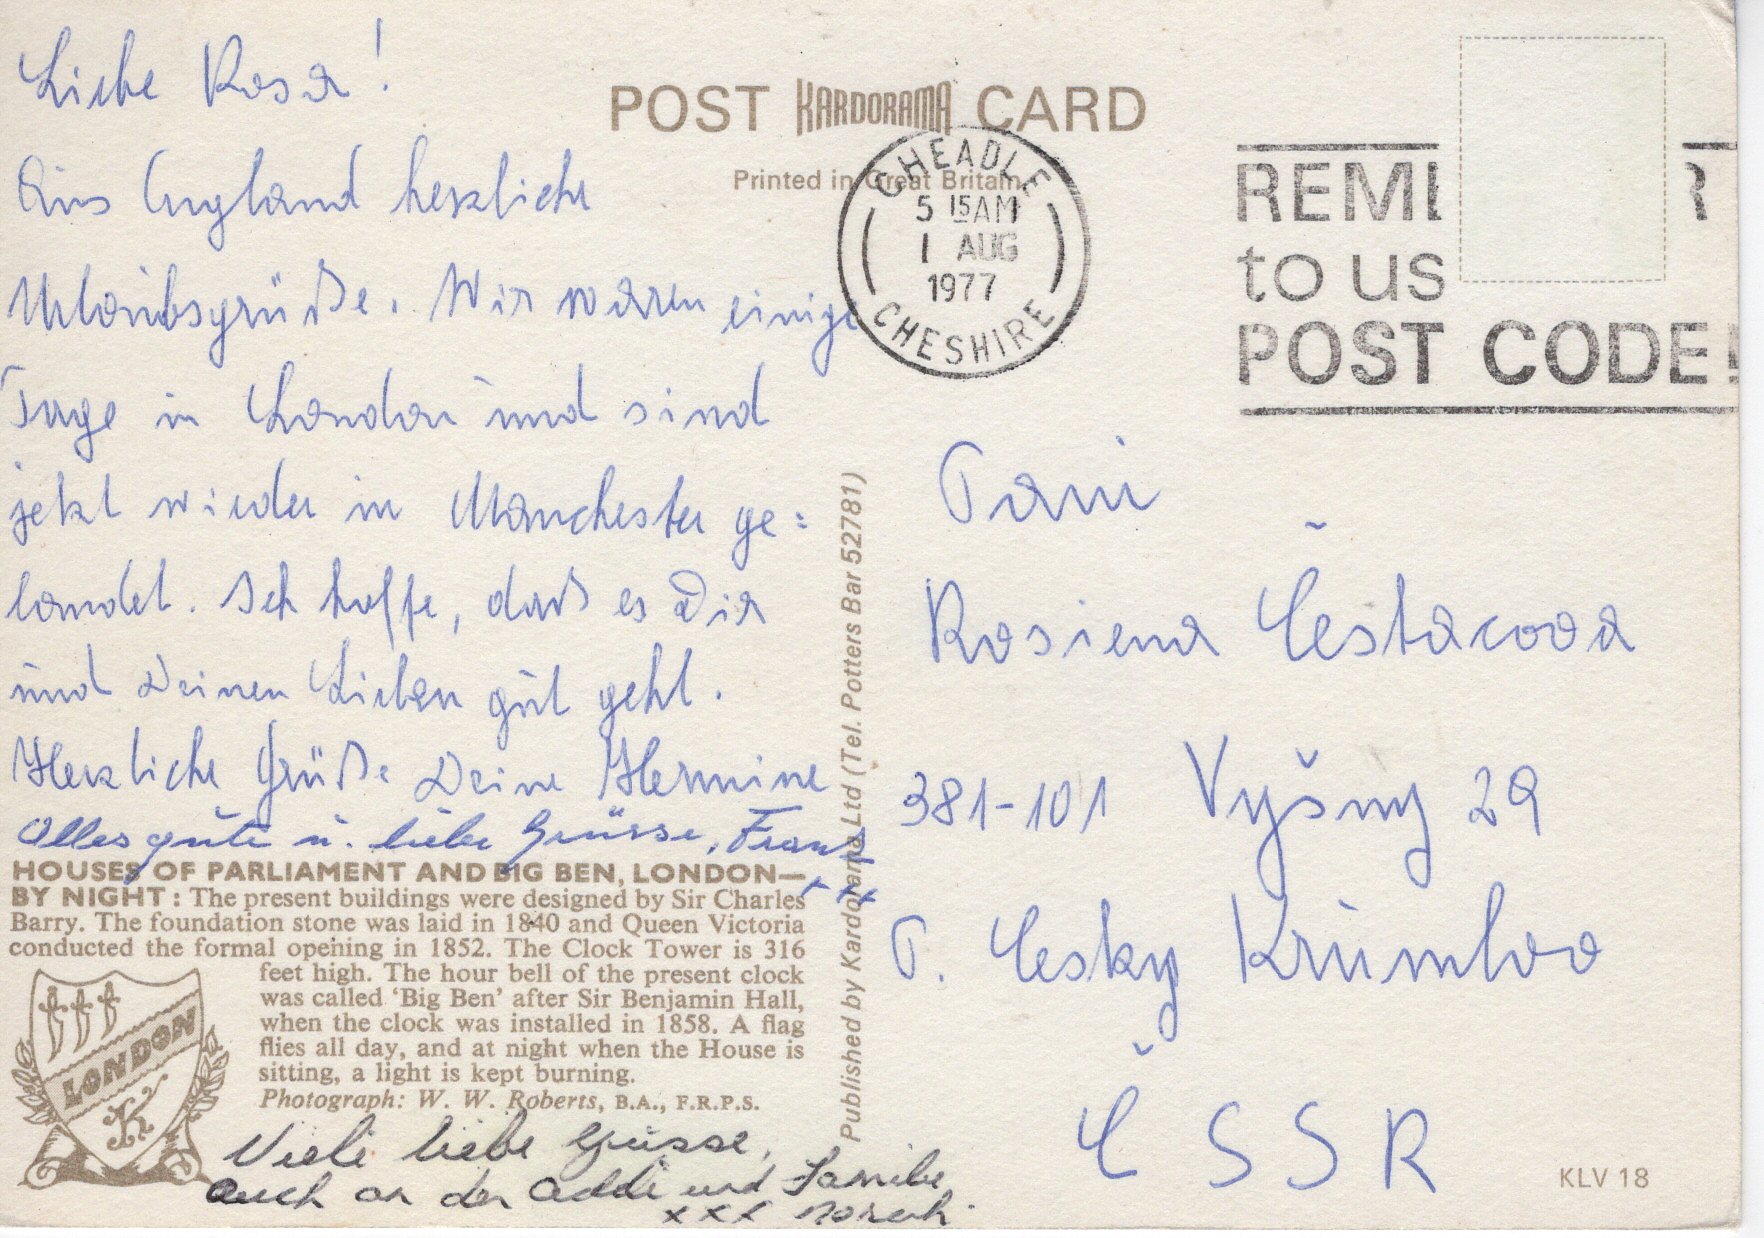 Liebe Rosa!
Aus England herzliche
Urlaubsgrüße. Wir waren einige
Tage in London und sind
jetzt wieder in Manchester ge=
landet. Ich hoffe, daß es Dir
und Deinen Lieben gut geht.
Herzliche Grüße Deine Hermine
Alles gute u. liebe Grüsse, Franz
xxx
POST KARDORAMA CARD
Printed in Great Britain
CHEADLE
5 15AM
1 AUG
1977
CHESHIRE
REMI R
to us
POST CODE!
Pani
Rosiena Čestacova
381-101 Vyšny 29
P. Česky Krumlov
ČSSR
Published by Kardorama Ltd (Tel. Potters Bar 52781)
HOUSES OF PARLIAMENT AND BIG BEN, LONDON—
BY NIGHT: The present buildings were designed by Sir Charles
Barry. The foundation stone was laid in 1840 and Queen Victoria
conducted the formal opening in 1852. The Clock Tower is 316
feet high. The hour bell of the present clock
was called ‘Big Ben’ after Sir Benjamin Hall,
when the clock was installed in 1858. A flag
flies all day, and at night when the House is
sitting, a light is kept burning.
Photograph: W. W. Roberts, B.A., F.R.P.S.
LONDON
K
Viele liebe Grüsse,
auch an der Addi und Familie
xxx
KLV 18